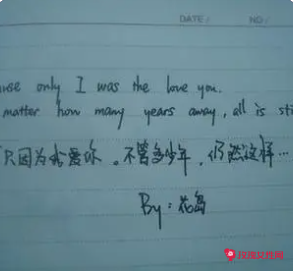 DATE: NO:
use only I was the love you.
matter how many years away, all is sti
只因为我爱你。不管多少年，仍然这样…
By:
找我女性网